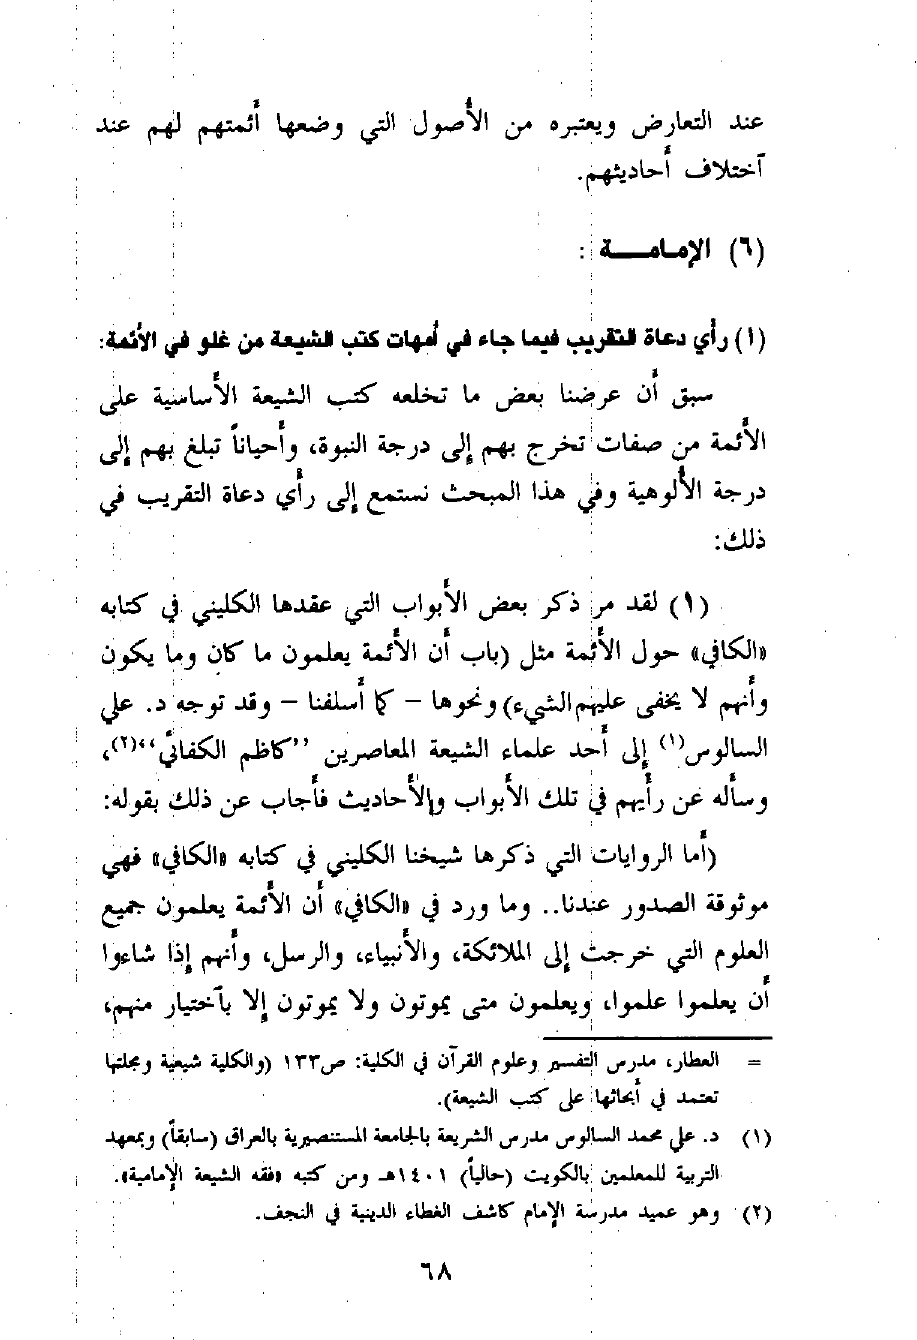 عند التعارض ويعتبره من الأصول التي وضعها أئمتهم لهم عند
آختلاف أحاديثهم.
(٦) الإمامـــة :
(ا) رأي دعاة التقريب فيما جاء في أمهات كتب الشيعة من غلو في الأئمة:
سبق أن عرضنا بعض ما تخلعه كتب الشيعة الأساسية على
الأئمة من صفات تخرج بهم إلى درجة النبوة، وأحياناً تبلغ بهم إلى
درجة الألوهية وفي هذا المبحث نستمع إلى رأي دعاة التقريب في
ذلك:
(١) لقد مر ذكر بعض الأبواب التي عقدها الكليني في كتابه
«الكافي» حول الأئمة مثل (باب أن الأئمة يعلمون ما كان وما يكون
وأنهم لا يخفى عليهم الشيء) ونحوها – كما أسلفنا – وقد توجه د. علي
السالوس(١) إلى أحد علماء الشيعة المعاصرين ’’كاظم الكفائي‘‘(٢)،
وسأله عن رأيهم في تلك الأبواب والأحاديث فأجاب عن ذلك بقوله:
(أما الروايات التي ذكرها شيخنا الكليني في كتابه «الكافي» فهي
موثوقة الصدور عندنا.. وما ورد في «الكافي» أن الأئمة يعلمون جميع
العلوم التي خرجت إلى الملائكة، والأنبياء، والرسل، وأنهم إذا شاءوا
أن يعلموا علموا، ويعلمون متى يموتون ولا يموتون إلا بآختيار منهم،
= العطار، مدرس التفسير وعلوم القرآن في الكلية: ص١٣٣ (والكلية شيعية ومجلتها
تعتمد في أبحاثها على كتب الشيعة).
(١) د. علي محمد السالوس مدرس الشريعة بالجامعة المستنصيرية بالعراق (سابقاً) وبمعهد
التربية للمعلمين بالكويت (حالياً) ١٤٠١هـ ومن كتبه «فقه الشيعة الإمامية».
(٢) وهو عميد مدرسة الإمام كاشف الغطاء الدينية في النجف.
٦٨